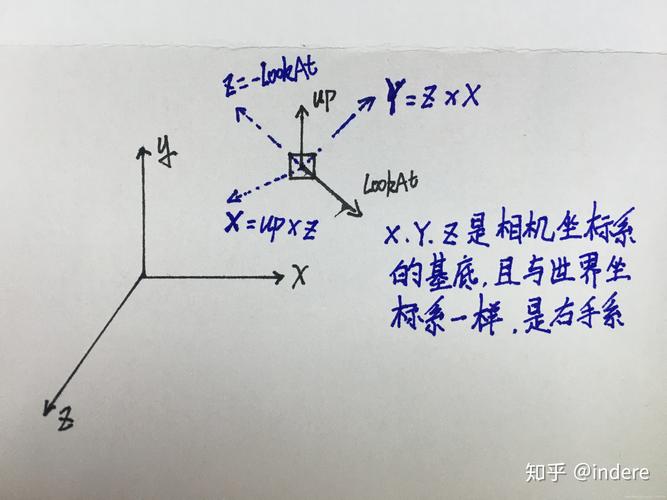 Z=-LookAt
up
Y=Z×X
LookAt
X=up×Z
y
X
Z
X.Y.Z是相机坐标系
的基底,且与世界坐
标系一样,是右手系
知乎 @indere